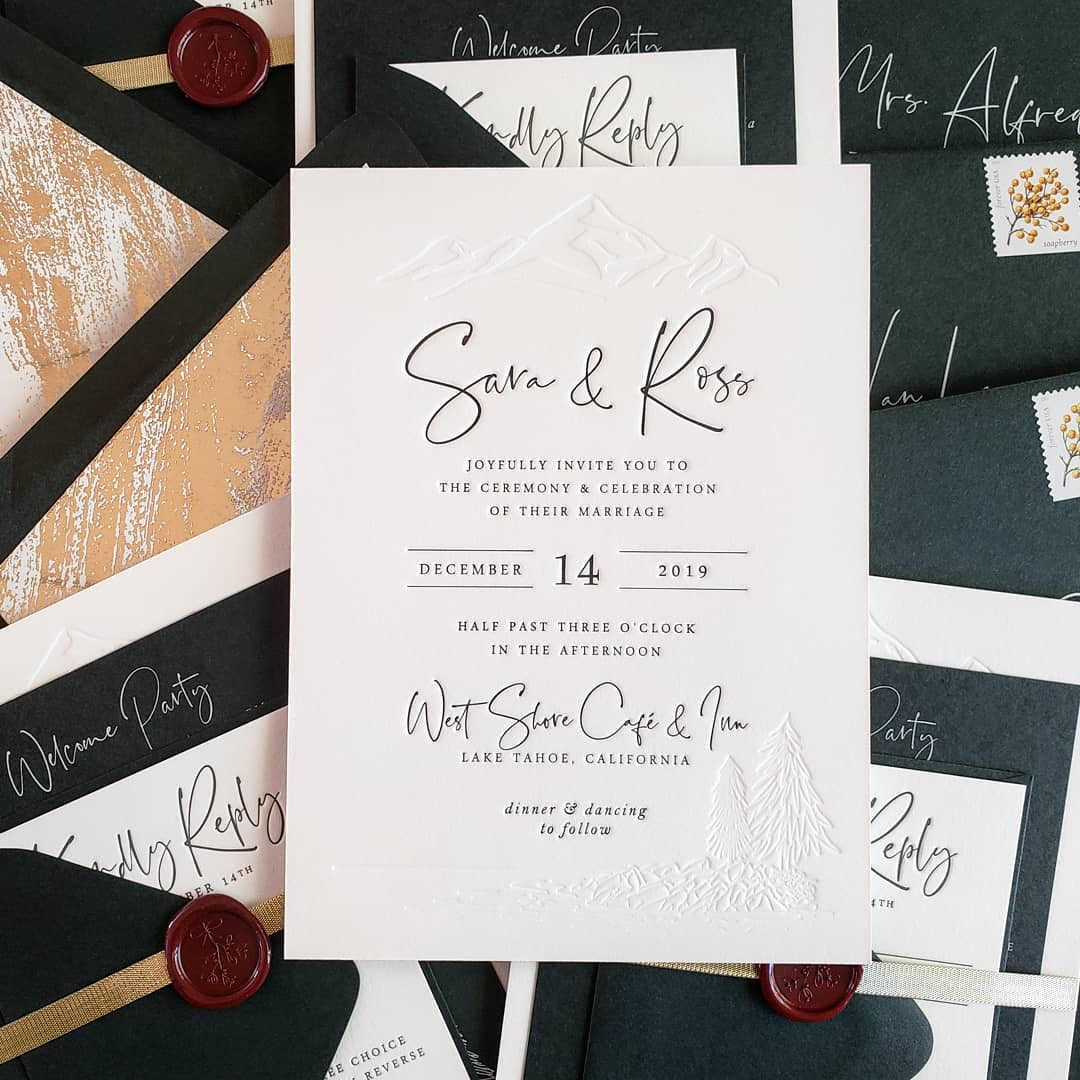 14TH
Welcome Party
Reply
Mrs.
forever USA
soapberry
Sara & Ross
JOYFULLY INVITE YOU TO
THE CEREMONY & CELEBRATION
OF THEIR MARRIAGE
DECEMBER 14 2019
HALF PAST THREE O'CLOCK
IN THE AFTERNOON
West Shore Café & Inn
LAKE TAHOE, CALIFORNIA
dinner & dancing
to follow
forever USA
Welcome Party
Reply
14TH
Party
Reply
14TH
CHOICE
REVERSE